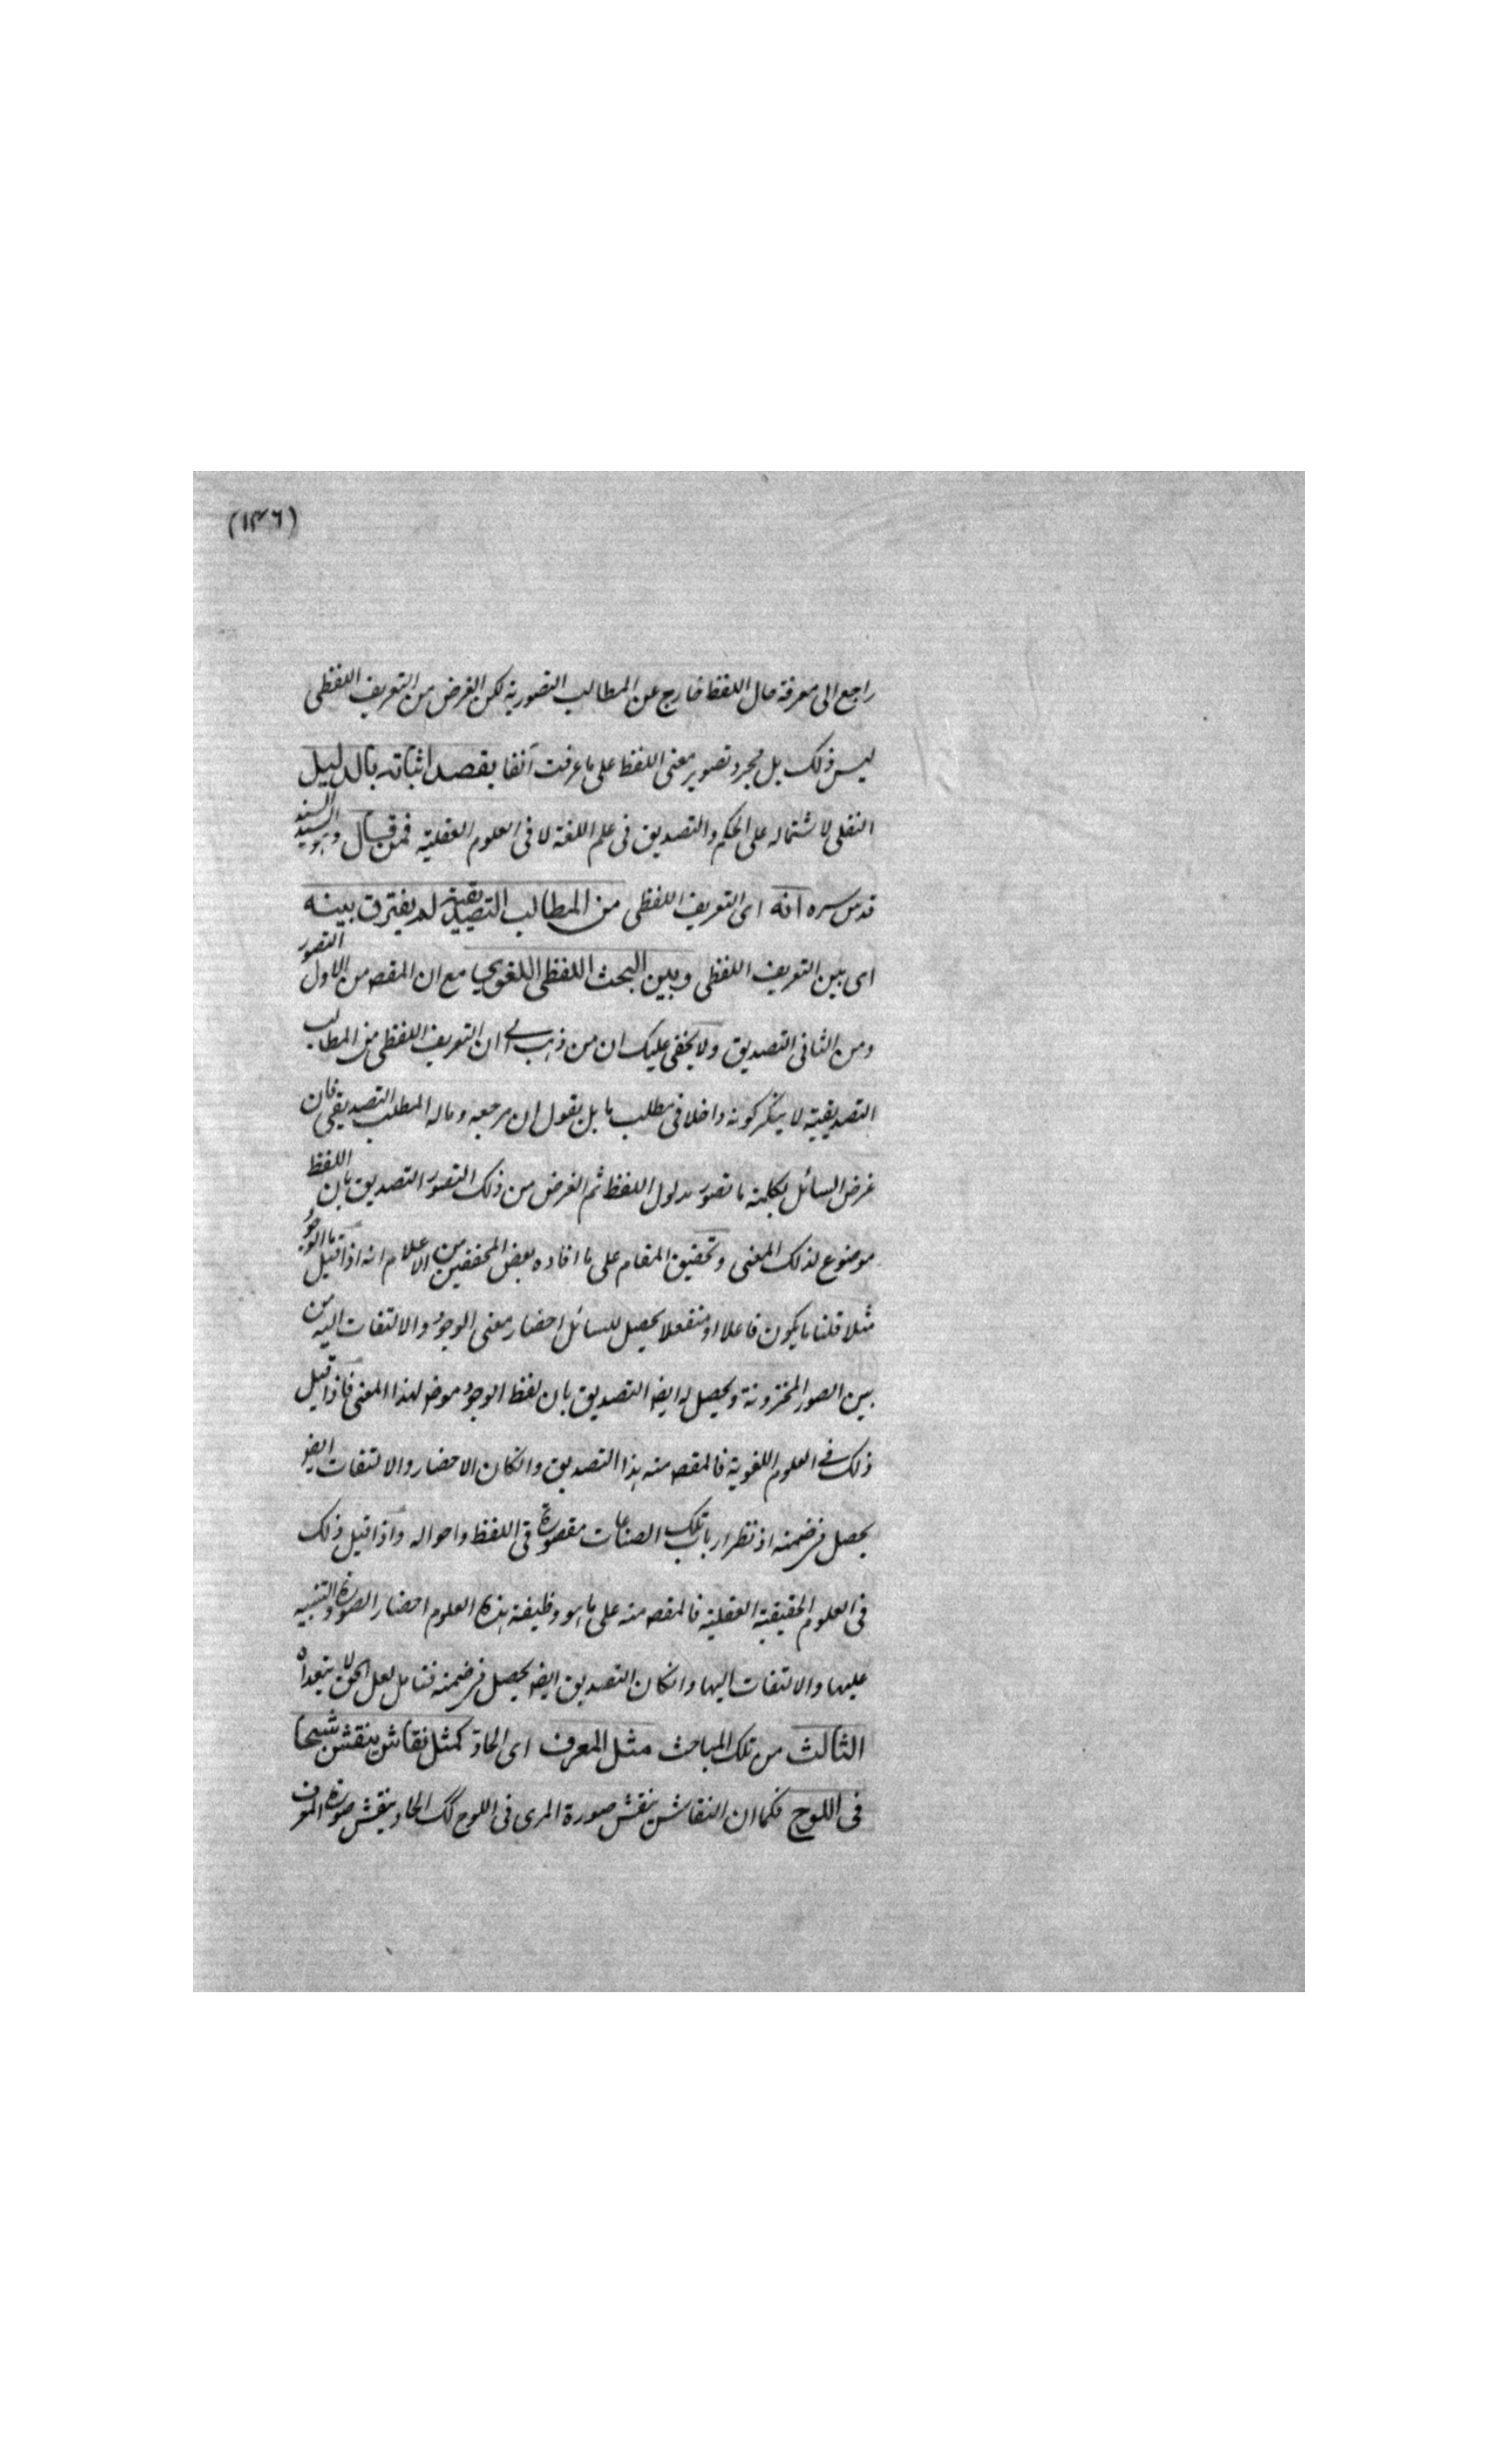 (١٣٦)
راجع الى معرفة حال اللفظ خارج عن المطالب التصورية لكن الغرض من التعريف اللفظى
ليس ذلك بل مجرد تصوير معنى اللفظ على ما عرفت آنفا يقصد اثباته بالدليل
النقلى لاشتماله على الحكم والتصديق فى علم اللغة لا فى العلوم العقلية فمن قال وهو السيد السند
قدس سره انه اى التعريف اللفظى من المطالب التصديقية لم يفترق بينه
اى بين التعريف اللفظى وبين البحث اللفظى اللغوي مع ان المقصـ من الاول التصور
ومن الثانى التصديق ولا يخفى عليك ان من ذهب الى ان التعريف اللفظى من المطالب
التصديقية لا ينكر كونه داخلا فى مطلب ما بل يقول ان مرجعه وماله المطلب التصديقى فان
غرض السائل بكلمة ما تصور مدلول اللفظ ثم الغرض من ذلك التصور التصديق بان اللفظ
موضوع لذلك المعنى وتحقيق المقام على ما افاده بعض المحققين من الاعلام انه اذا قيل ما الوجود
مثلا قلنا ما يكون فاعلا او منفعلا يحصل للسائل احضار معنى الوجود والالتفات اليه من
بين الصور المخزونة ويحصل له ايضـ التصديق بان لفظ الوجود موضـ لهذا المعنى فاذا قيل
ذلك فى العلوم اللغوية فالمقصـ منه هذا التصديق وانكان الاحضار والالتفات ايضـ
يحصل فى ضمنه اذ نظر ارباب تلك الصناعات مقصورة فى اللفظ واحواله واذا قيل ذلك
فى العلوم الحقيقية العقلية فالمقصـ منه على ما هو وظيفة هذه العلوم احضار الصورة والتنبيه
عليها والالتفات اليها وانكان التصديق ايضـ يحصل فى ضمنه فتامل لعل الحق لا يتعداه
الثالث من تلك المباحث مثل المعرف اى الحاد كمثل نقاش ينقش شبحا
فى اللوح فكما ان النقاش ينقش صورة المرى فى اللوح كك الحاد ينقش صورة المعرف